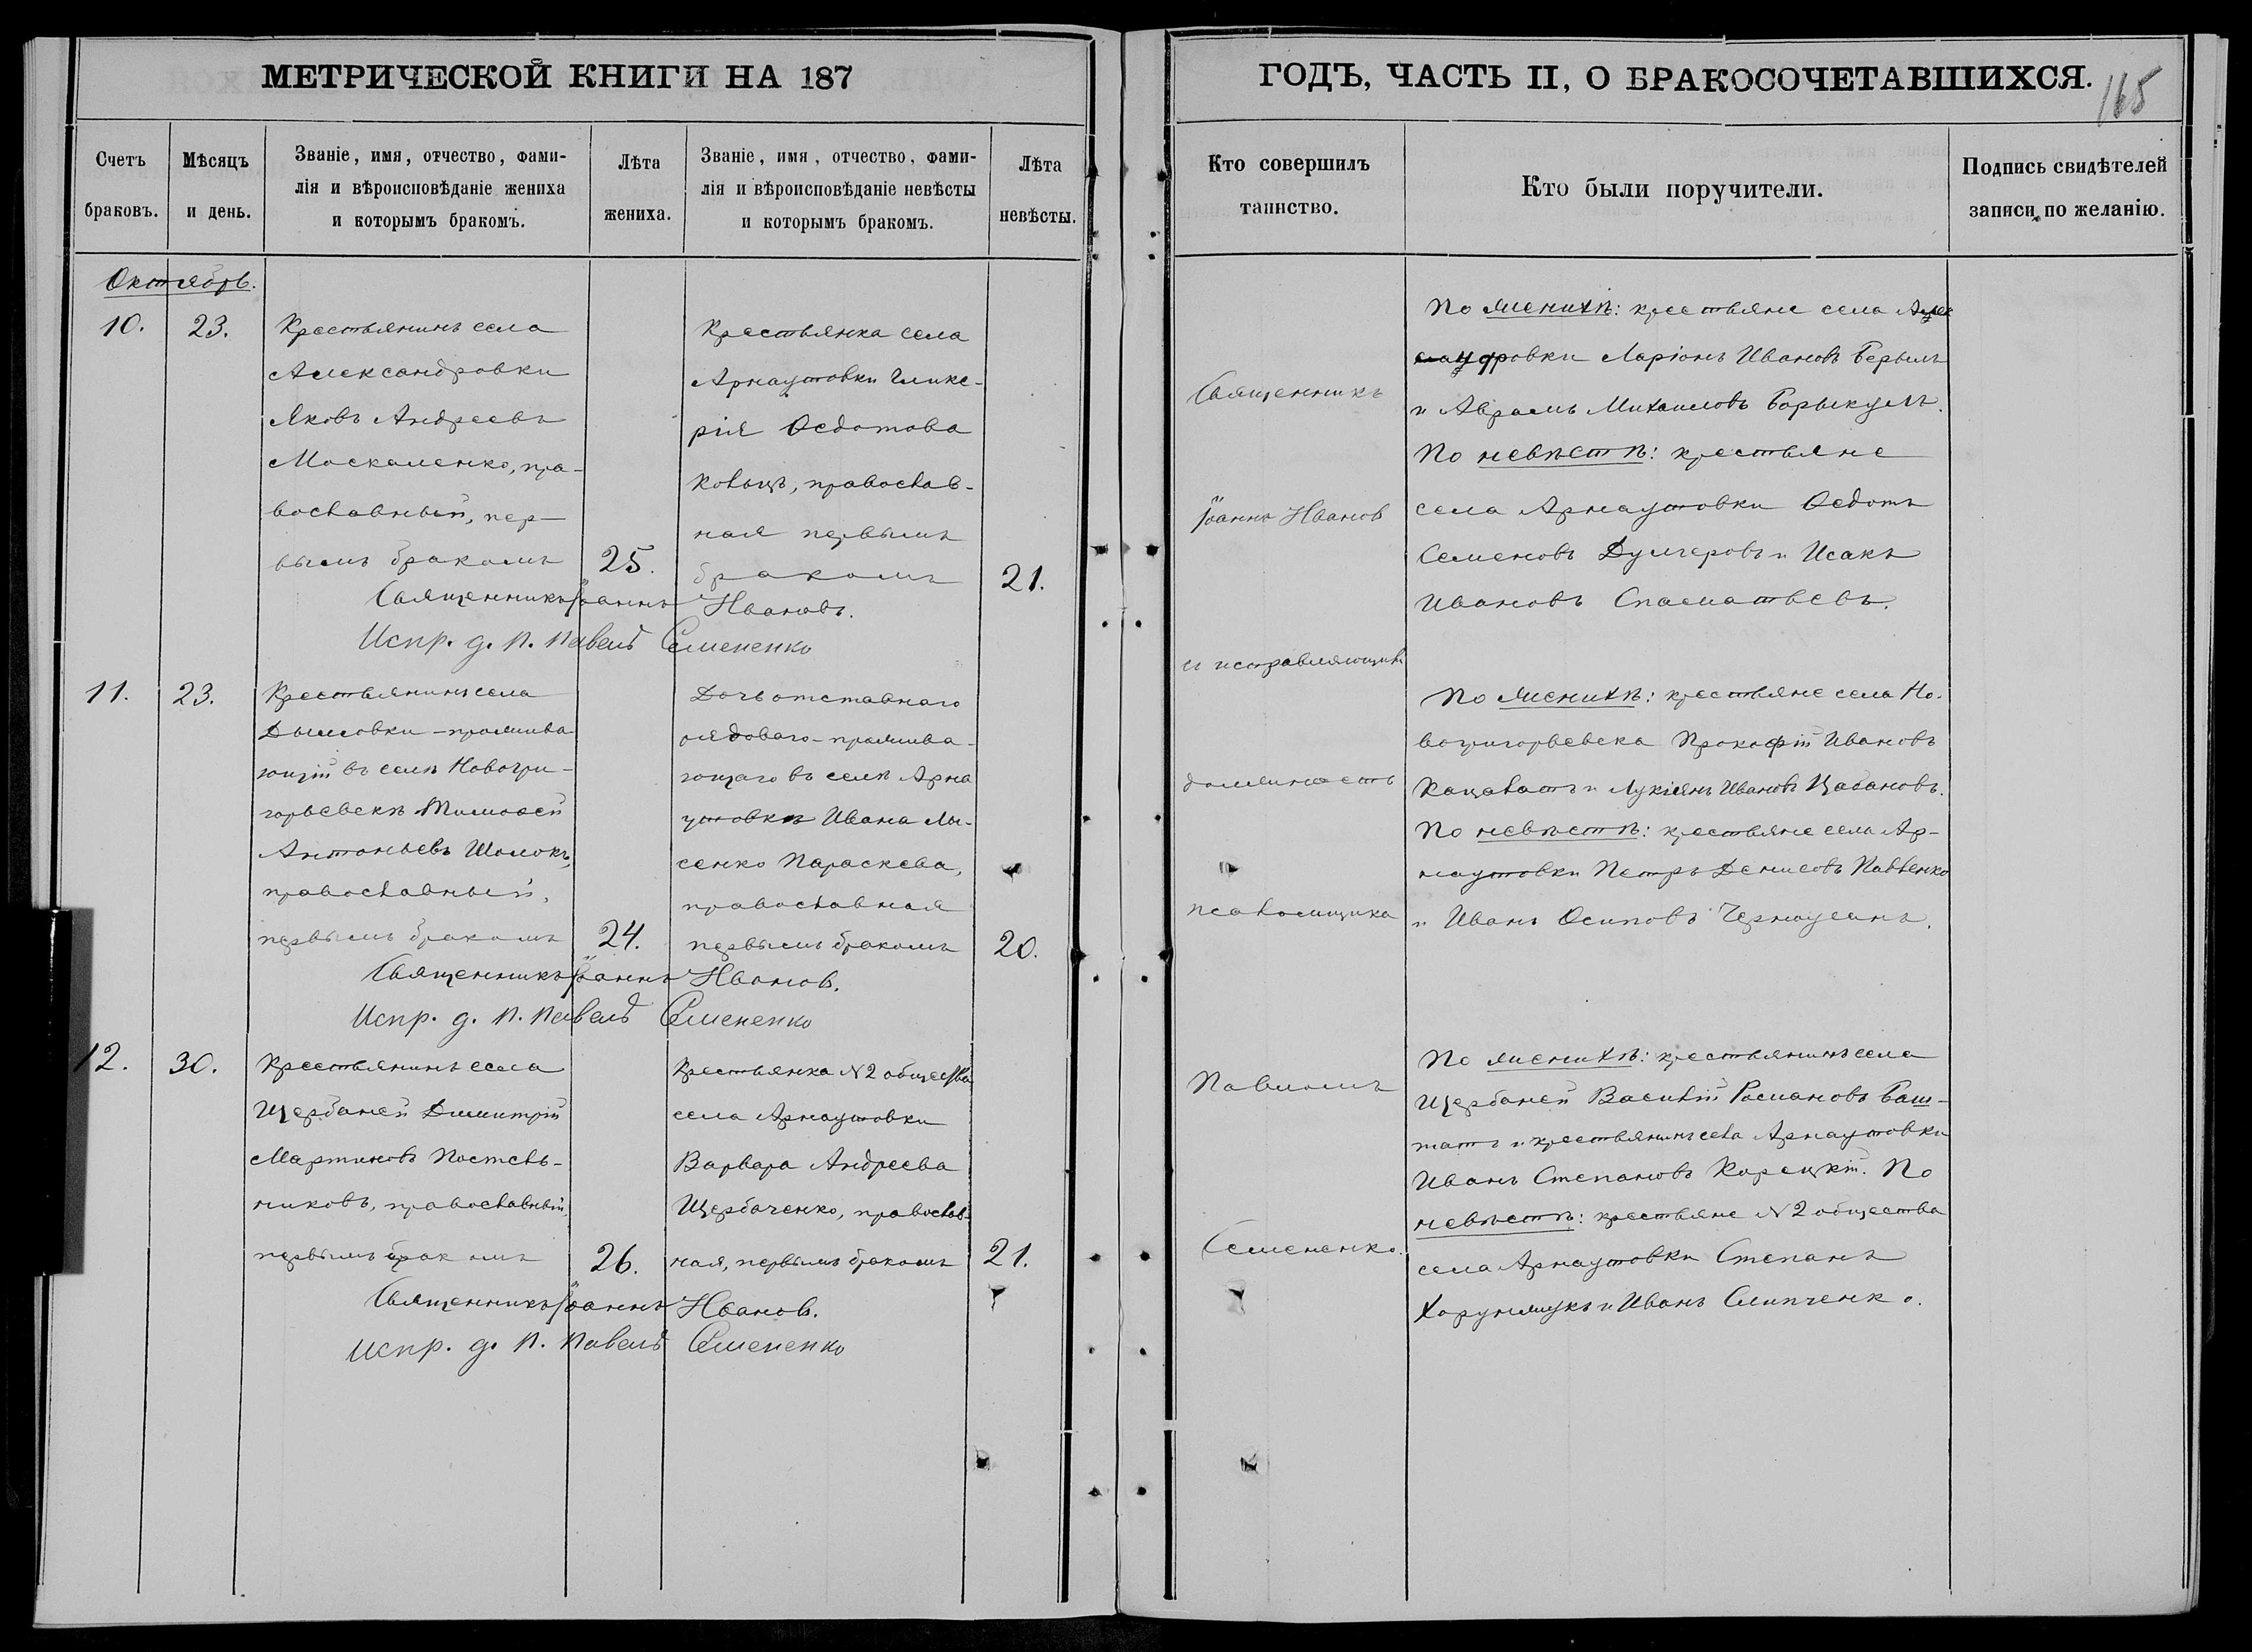 МЕТРИЧЕСКОЙ КНИГИ НА 187
Счетъ браковъ.
Мѣсяцъ и день.
Званіе, имя, отчество, фами-
лія и вѣроисповѣданіе жениха
и которымъ бракомъ.
Лѣта жениха.
Званіе, имя, отчество, фами-
лія и вѣроисповѣданіе невѣсты
и которымъ бракомъ.
Лѣта невѣсты.
Октябрь.
10.
23.
Крестьянинъ села
Александровки
Яковъ Андреевъ
Москаленко, пра-
вославный, пер-
вымъ бракомъ
25.
Крестьянка села
Арнаутовки Глике-
рія Ѳедотова
православ-
ная первымъ
бракомъ
21.
Священникъ Іоаннъ Ивановъ.
Испр. д. п. Павелъ Семененко
11.
23.
Крестьянинъ села
Дымовки - прожива-
ющій въ селѣ Новогри-
горьевскѣ Тимоѳей
Антоньевъ Шолокъ,
православный,
первымъ бракомъ
24.
Дочь отставнаго
рядоваго - прожива-
ющаго въ селѣ Арна
утовкѣ Ивана Лы-
сенко Параскева,
православная
первымъ бракомъ
20.
Священникъ Іоаннъ Ивановъ.
Испр. д. п. Павелъ Семененко
12.
30.
Крестьянинъ села
Щербаней Димитрій
Мартиновъ Постель-
никовъ, православный,
первымъ бракомъ
26.
Крестьянка N2 общества
села Арнаутовки
Варвара Андреева
Щербаченко, православ-
ная, первымъ бракомъ
21.
Священникъ Іоаннъ Ивановъ.
Испр. д. п. Павелъ Семененко
ГОДЪ, ЧАСТЬ II, О БРАКОСОЧЕТАВШИХСЯ.
165
Кто совершилъ
таинство.
Кто были поручители.
Подпись свидѣтелей
записи по желанію.
Священникъ
Іоаннъ Иванов
и исправляющій
должность
псаломщика
Павломъ
Семененко.
По женихѣ: крестьяне села Алек
дровки Ларіонъ Ивановъ
и Аврамъ Михаиловъ
По невѣстѣ: крестьяне
села Арнаутовки Ѳедотъ
Семеновъ Дулгеровъ и Исакъ
Ивановъ
По женихѣ: крестьяне села Но-
вогригорьевска Прокофій Ивановъ
и Лукіянъ Ивановъ Цабановъ.
По невѣстѣ: крестьяне села Ар-
наутовки Петръ Денисовъ Павленко
и Иванъ Осиповъ
По женихѣ: крестьянинъ села
Щербаней Василій Романовъ Баш-
татъ и крестьянинъ села Арнаутовки
Иванъ Степановъ Корецкій. По
невѣстѣ: крестьяне N2 общества
села Арнаутовки Степанъ
Харунжукъ и Иванъ Слипченко.